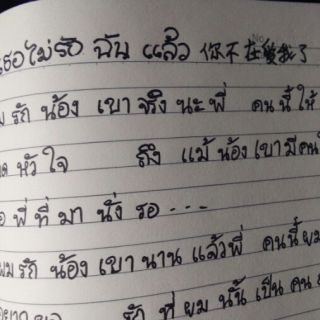 เธอไม่รัก ฉัน แล้ว 你不在爱我了
รัก น้อง เขา จริง นะ พี่ คน นี้ ให้
หัว ใจ ถึง แม้ น้อง เขา มี คน
พี่ ที่ มา นั่ง รอ ---
ผม รัก น้อง เขา นาน แล้ว พี่ คน นี้ ผม
รัก ที่ ผม นั้น เป็น คน